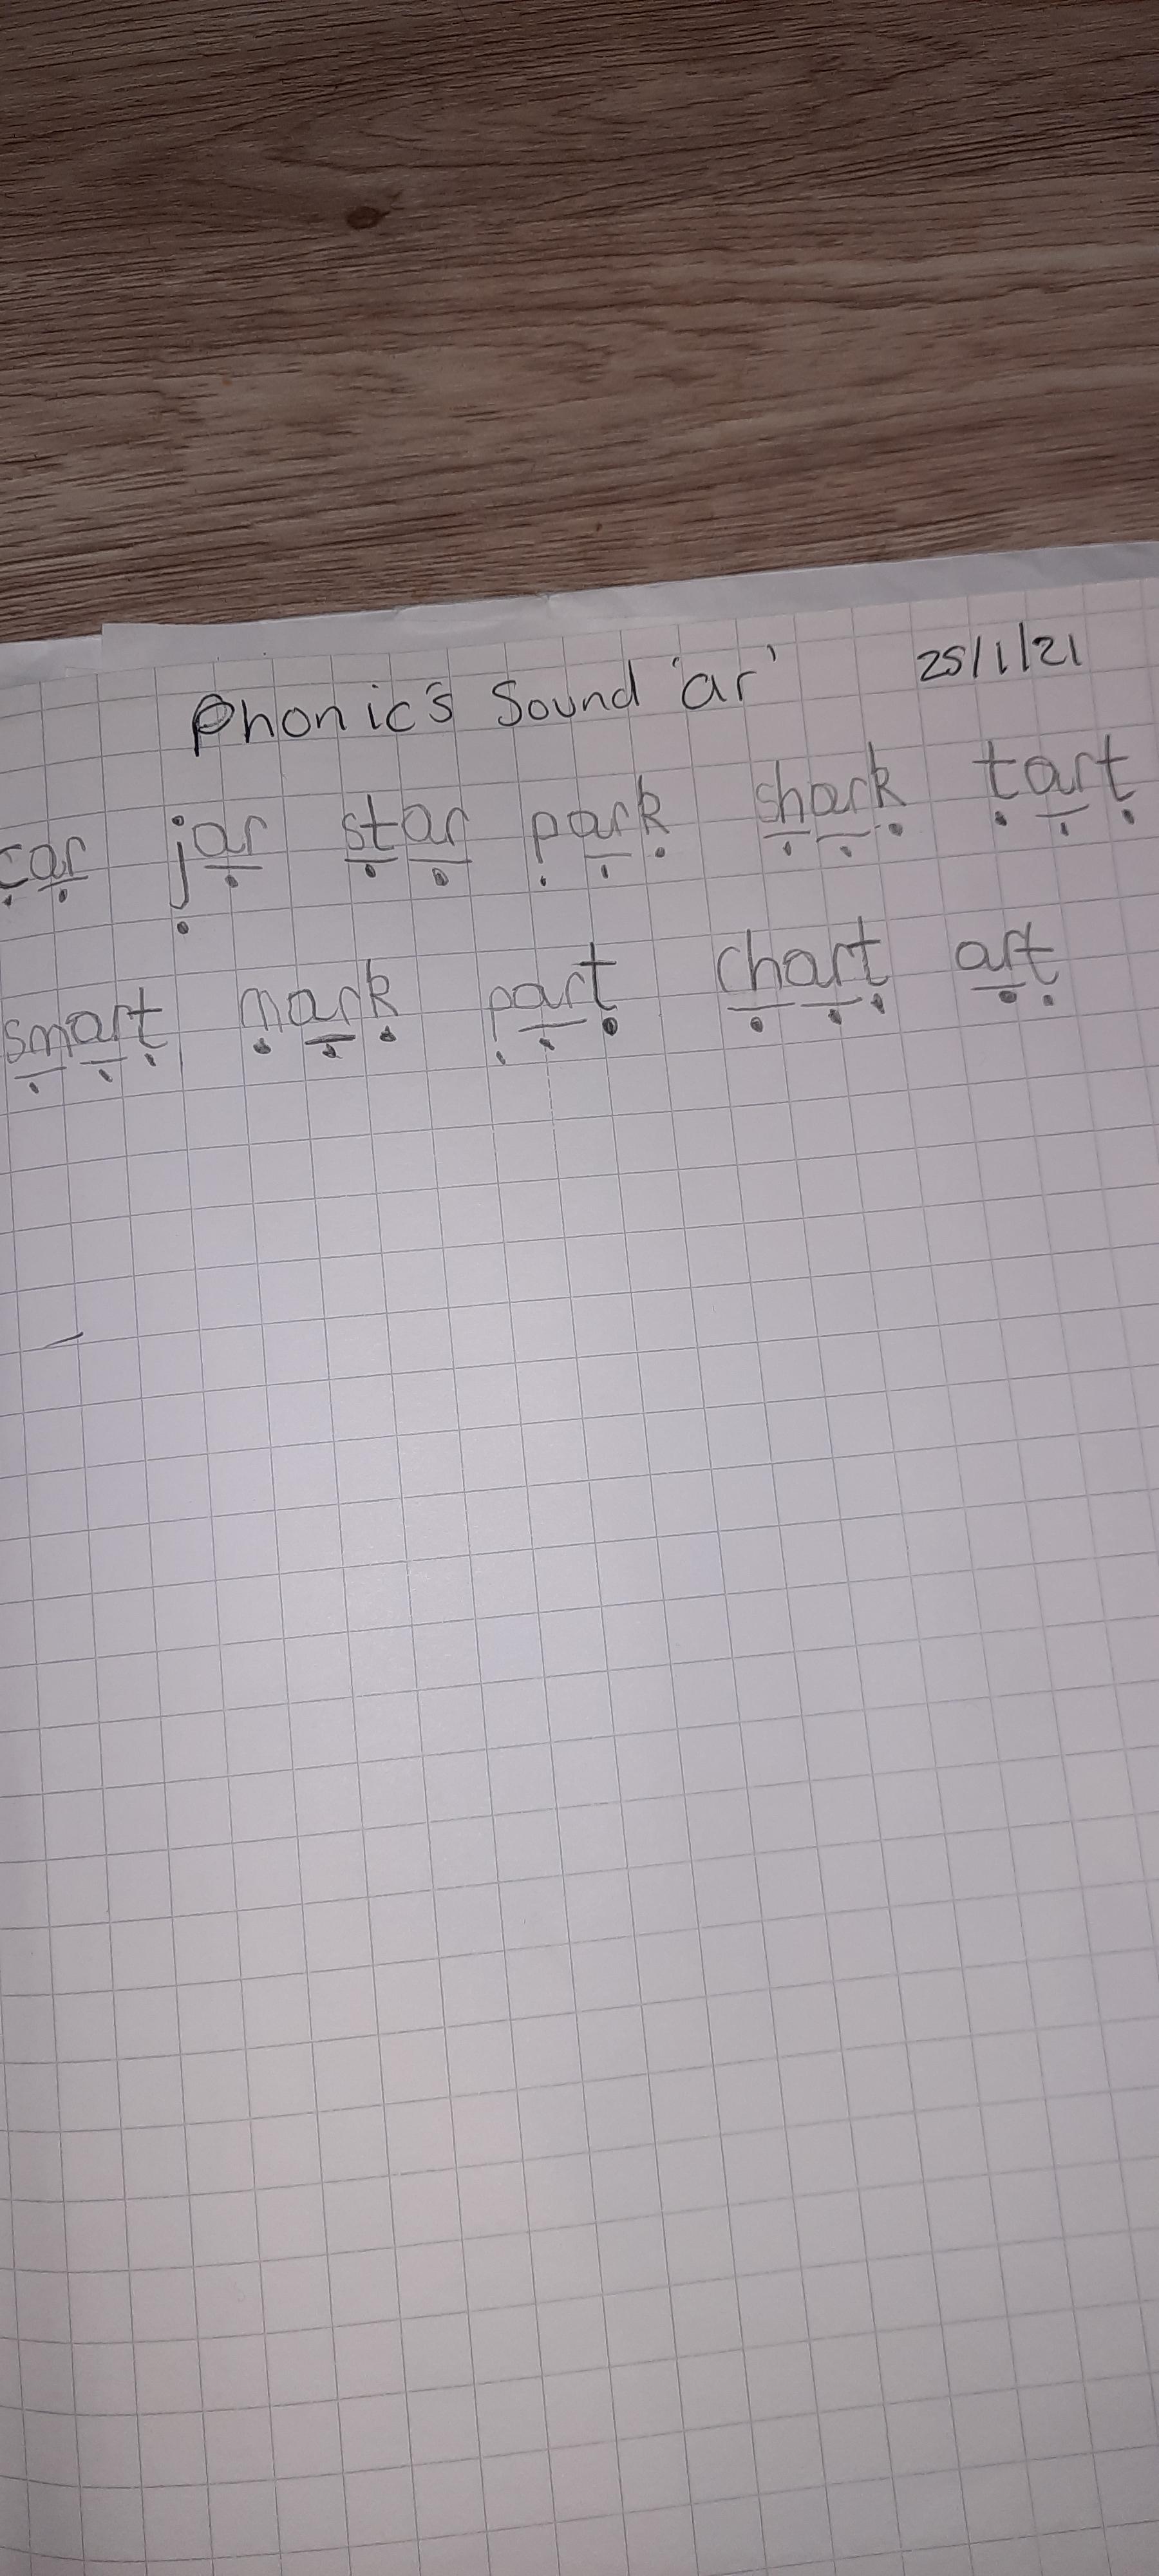 Phonic's Sound 'ar' 25/1/21
car jar star park shark tart
smart mark part chart art